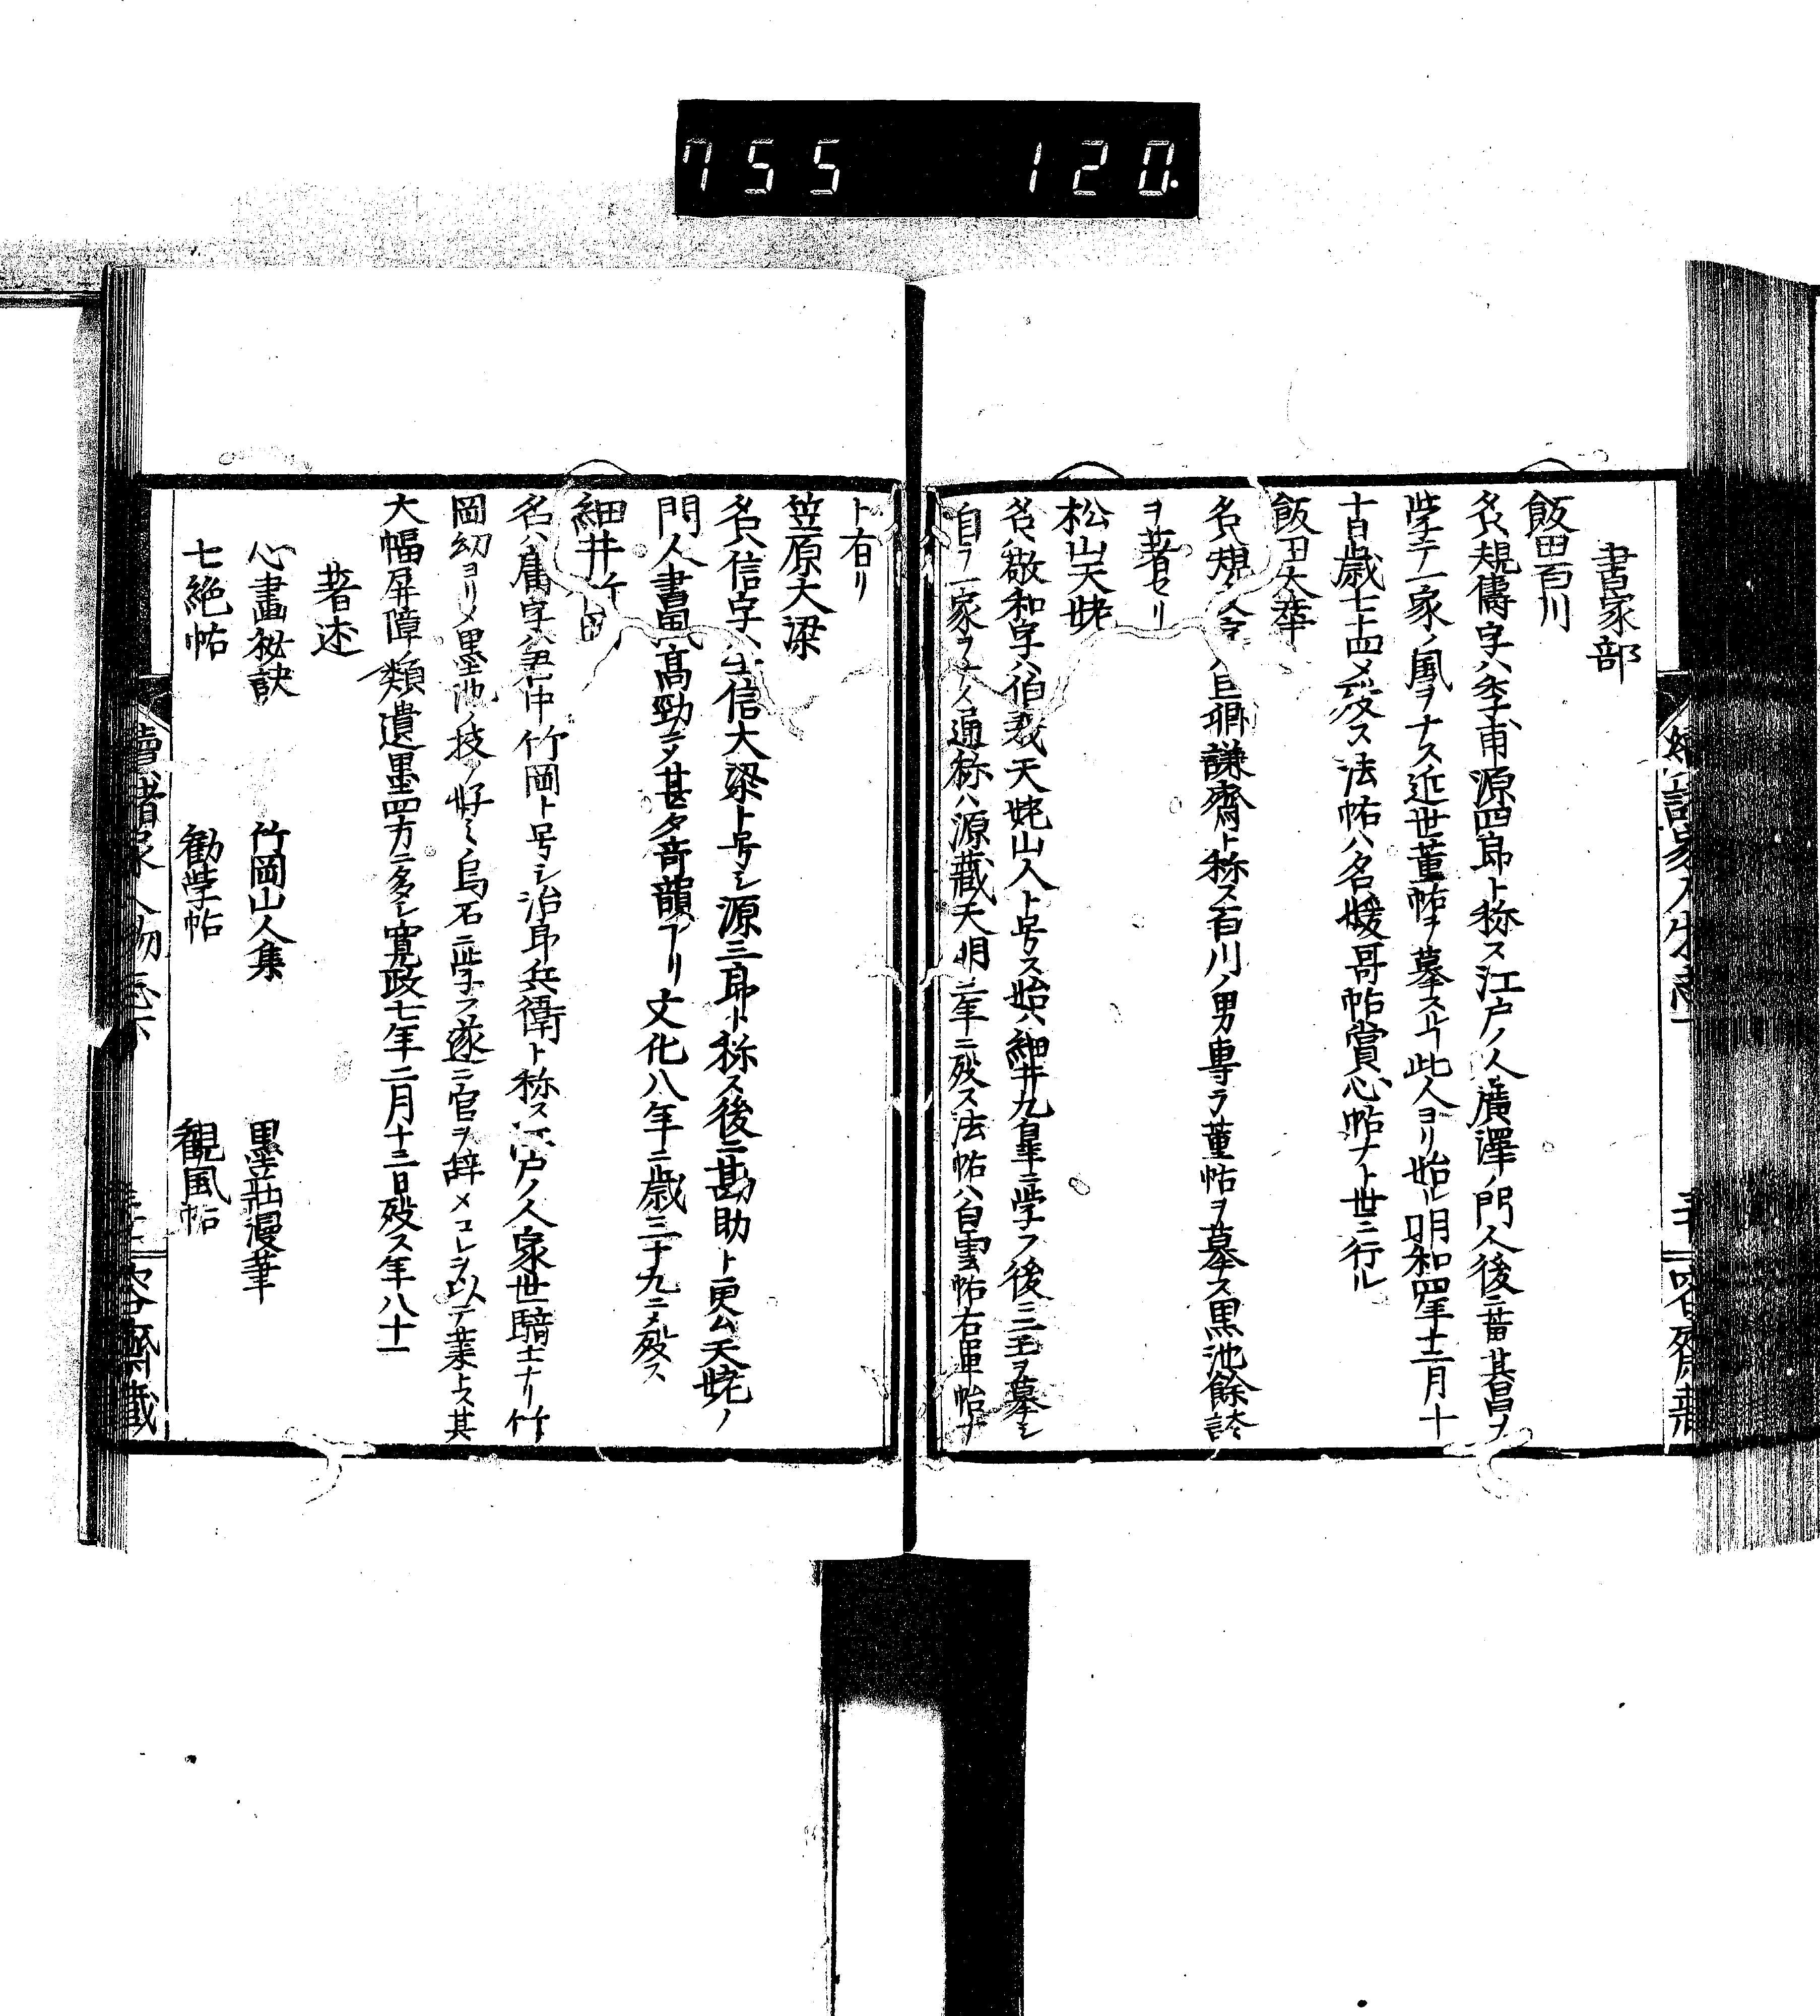 755 120.
書家部
飯田百川
名ハ規儔字ハ季甫源四郎ト称ス江戸ノ人廣澤ノ門人後ニ董其昌ヲ
学テ一家ノ風ヲナス近世董帖ヲ摹スルヿ此人ヨリ始ル明和四年十二月十
十日歳七十四ニメ歿ス法帖ハ名媛哥帖賞心帖ナト世ニ行ル
飯田大華
名ハ規 字ハ巨卿謙齋ト称ス百川ノ男専ラ董帖ヲ摹ス黒池餘誇
ヲ著セリ
松山天姥
名ハ敬和字ハ伯 天姥山人ト号ス始ハ細井九皐ニ学フ後三王ヲ摹シ
自ラ一家ヲナス通称ハ源藏天明二年ニ歿ス法帖ハ白雲帖右軍帖ナ
ト有リ
笠原大梁
名ハ信字ハ 信大梁ト号シ源三郎ト称ス後ニ勘助ト更ム天姥ノ
門人書風高勁ニメ甚タ奇韻アリ文化八年ニ歳三十九ニメ歿ス
細井竹岡
名ハ庸字ハ君中竹岡ト号シ治郎兵衛ト称ス江戸ノ人家世騎士ナリ竹
岡幼ヨリメ墨池ノ技ヲ好ミ烏石ニ学フ遂ニ官ヲ辞メコレヲ以テ業トス其
大幅屏障ノ類遺墨四方ニ多シ寛政七年二月十三日歿ス年八十一
著述
心畫祕訣 竹岡山人集 墨莊漫筆
七絶帖 勧学帖 観風帖
續諸家人物志下 容齋藏